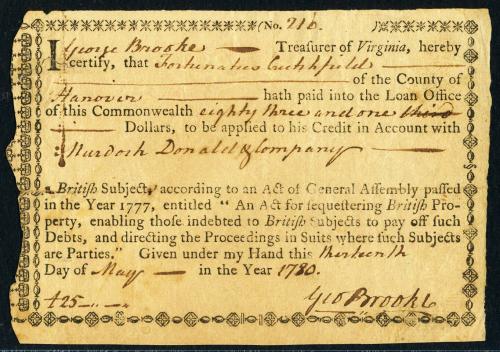 (No. 216.
I George Brooke Treasurer of Virginia, hereby
certify, that Fortunatus Crutchfield
of the County of
Hanover hath paid into the Loan Office
of this Commonwealth eighty three and one third
Dollars, to be applied to his Credit in Account with
Murdoch Donald & Company
a British Subject, according to an Act of General Assembly passed
in the Year 1777, entitled "An Act for sequestering British Pro-
perty, enabling those indebted to British Subjects to pay off such
Debts, and directing the Proceedings in Suits where such Subjects
are Parties." Given under my Hand this thirteenth
Day of May in the Year 1780.
£25
Geo Brooke